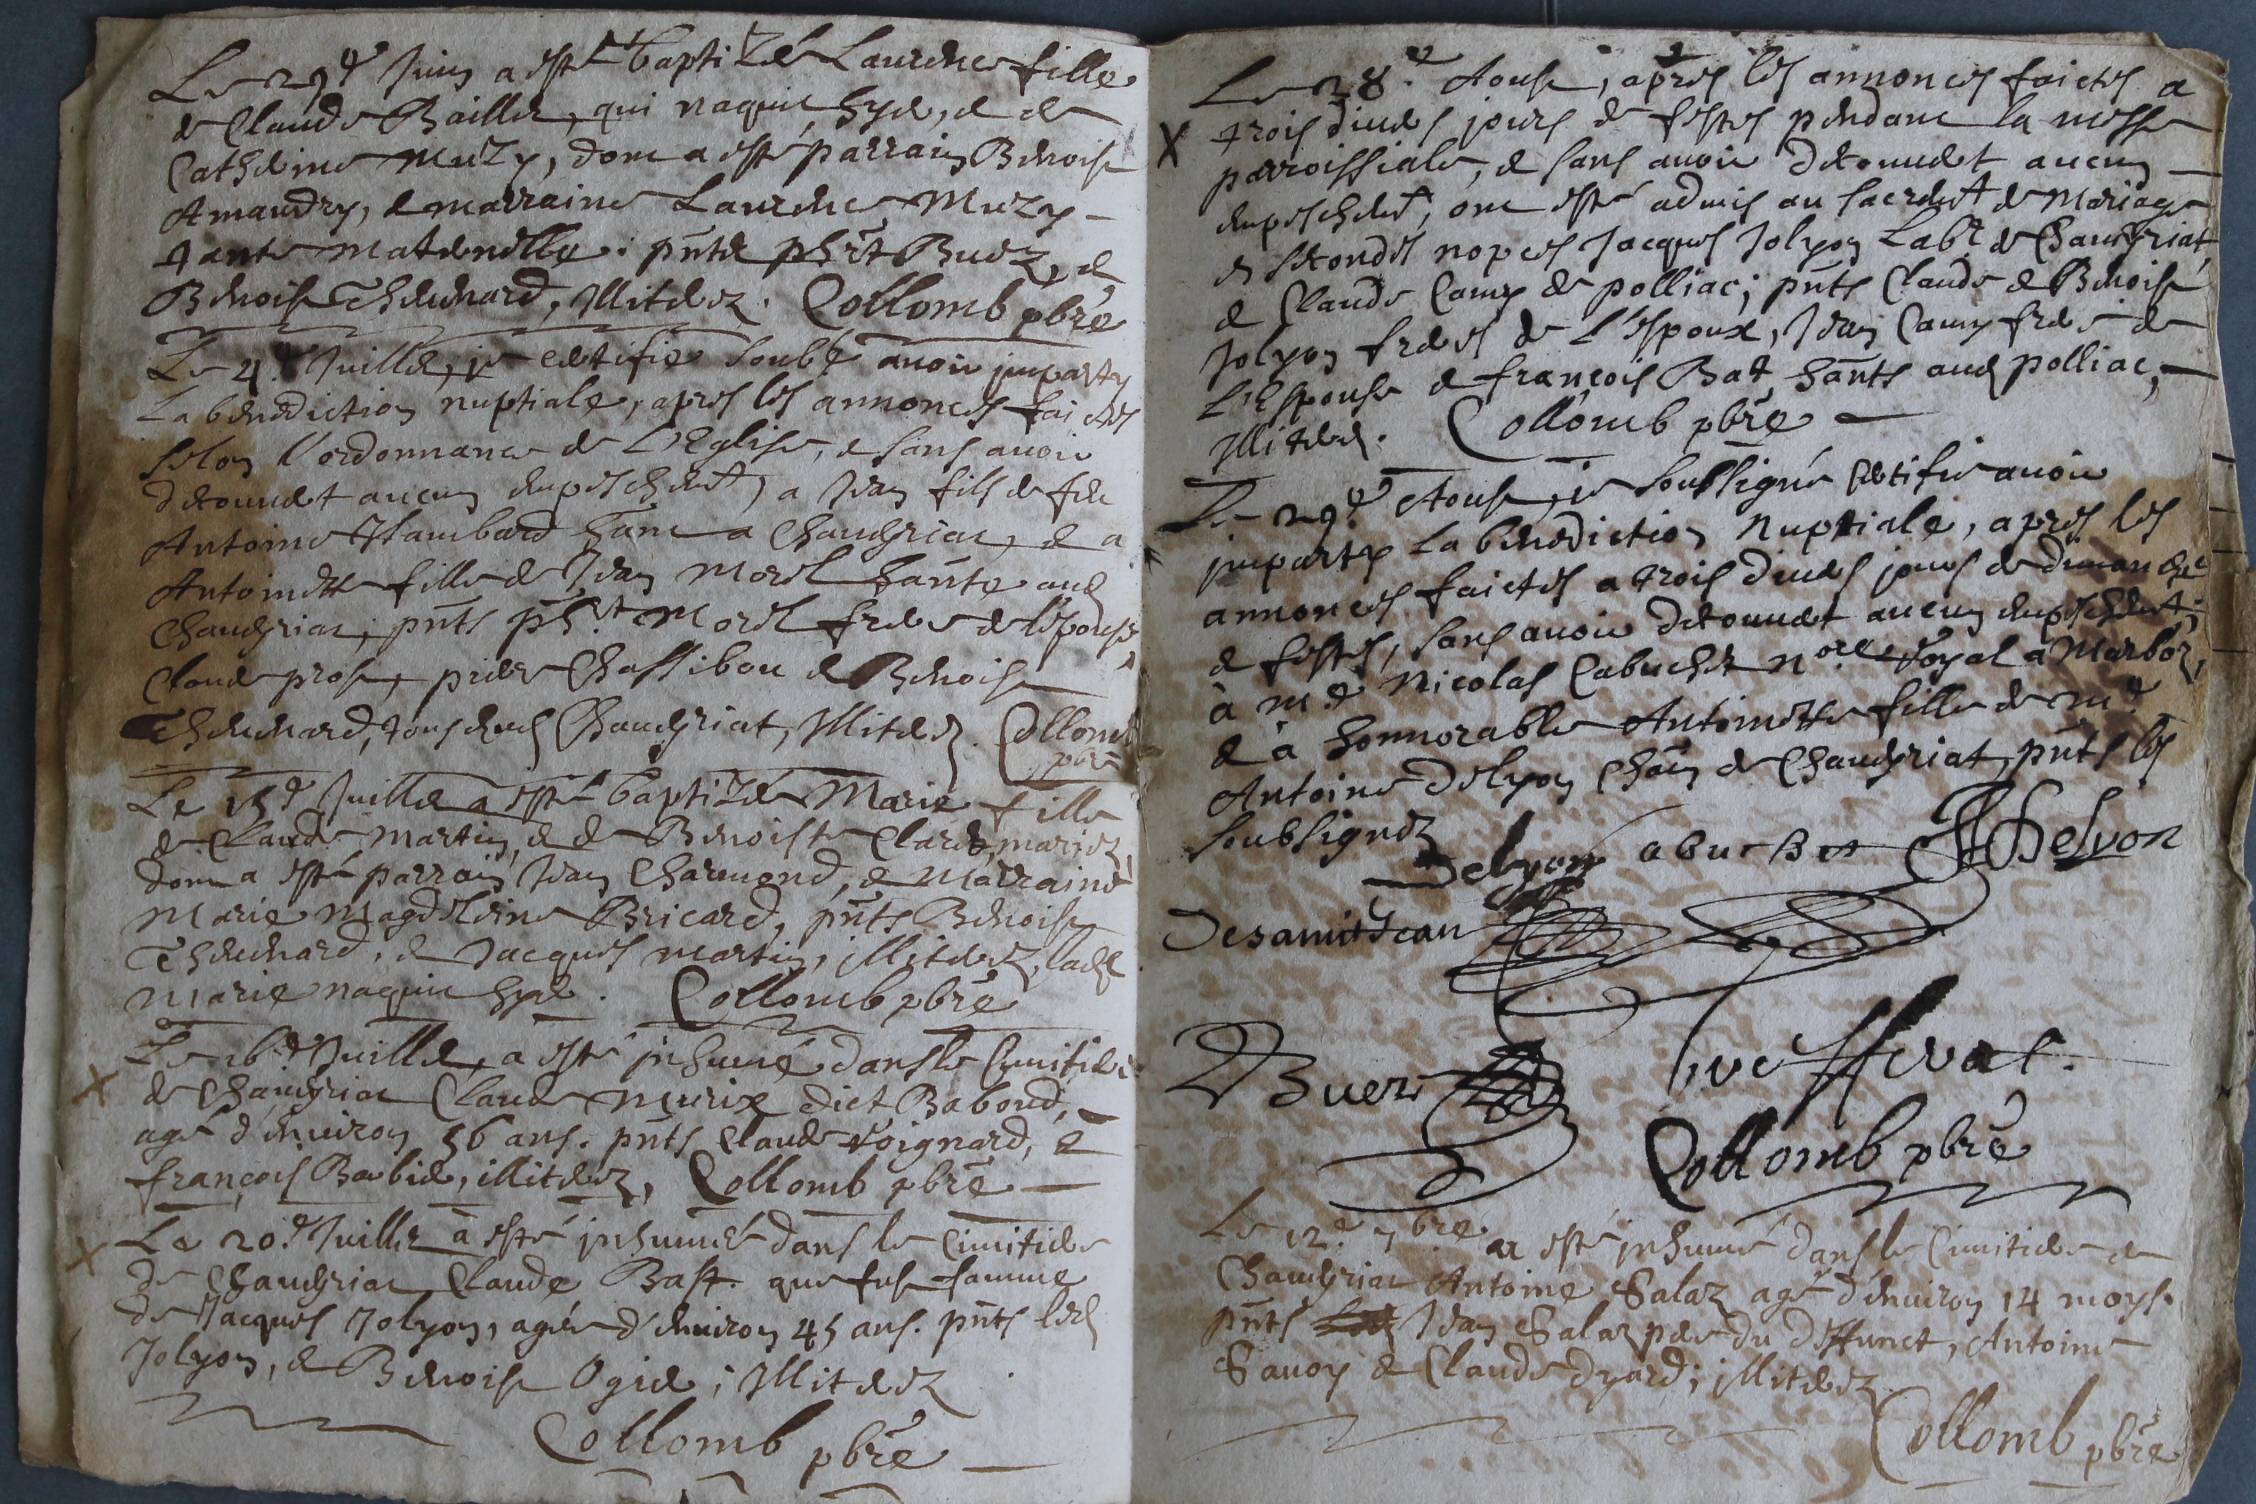 Le 29e Juin a esté baptizée Laurence fille
de Claude Baillet, qui naquit hyer, et de
Catherine Muzy, dont a esté parrain Benoist
Amaudry, et marraine Laurence Muzy
tante maternelle. pnts phbt Buez, et
Benoist Thevenard, illiterez. Collomb pbre
Le 4e Juillet, je certifie soubsé avoir imparty
La benediction nuptiale, apres les annonces faictes
selon l'ordonnance de L'Eglise, et sans avoir
decouvert aucun empeschemt, a Jean fils de feu
Antoine Hambard hant a Chaveyriat, et a
Antoinette fille de Jean Morel hante aud
Chaveyriat; pnts phbt Morel frere de l'epouse
Claude prost, pierre Chassibou et Benoist
Thevenard, tous dud Chaveyriat, illiterez. Collomb
pbre
Le 15e Juillet a esté baptizée Marie fille
de Claude Martin, et de Benoiste Claret, mariez,
dont a esté parrain Jean Charmond, et Marraine
Marie Magdeleine Bricard, pnts Benoist
Thevenard, et Jacques Martin, illiterez, lade
Marie naquit hyer. Collomb pbre
Le 16e Juillet, a esté inhumé dans le Cimitiere
de Chaveyriat Claude Murix dict Baboud,
agé d'environ 56 ans. pnts Claude Voignard, et
françois Barbier, illiterez, Collomb pbre
Le 20e Juillet a esté inhumée dans le Cimitiere
de Chaveyriat Claude Bast. que fust famme
de Jacques Jolyon, agée d'environ 45 ans. pnts led
Jolyon, et Benoist Ogier; illiterez
Collomb pbre
Le 28e Aoust, apres les annonces faictes a
trois divers jours de festes pendant la messe
parroissiale, et sans avoir decouvert aucun
empeschemt, ont esté admis au sacremt de Mariage
en secondes nopces Jacques Jolyon Labr de Chaveyriat,
et Claude Camy de polliac; pnts Claude et Benoist
Jolyon freres de l'espoux, Jean Camy frere de
L'Espouse et françois Bat, hants aud polliac,
illiterez. Collomb pbre
Le 29e Aoust, je soubsigné certifie avoir
imparty La benediction Nuptiale, apres les
annonces faictes a trois divers jours de dimanche
et festes, sans avoir decouvert aucun empeschemt;
à me Nicolas Cabuchet nore Royal a Marboz,
et à honnorable Antoinette fille de me
Antoine Delyon chain de Chaveyriat, pnts les
soubsignez
Delyon Cabuchet Delyon
Desamitjean
Buez
Collomb pbre
Le 12e 7bre a esté inhumé dans le Cimitiere de
Chaveyriat Antoine Salaz agé d'environ 14 moys.
pnts Jean Salaz pere du deffunct, Antoine
Savoy et Claude dyard; illiterez
Collomb pbre